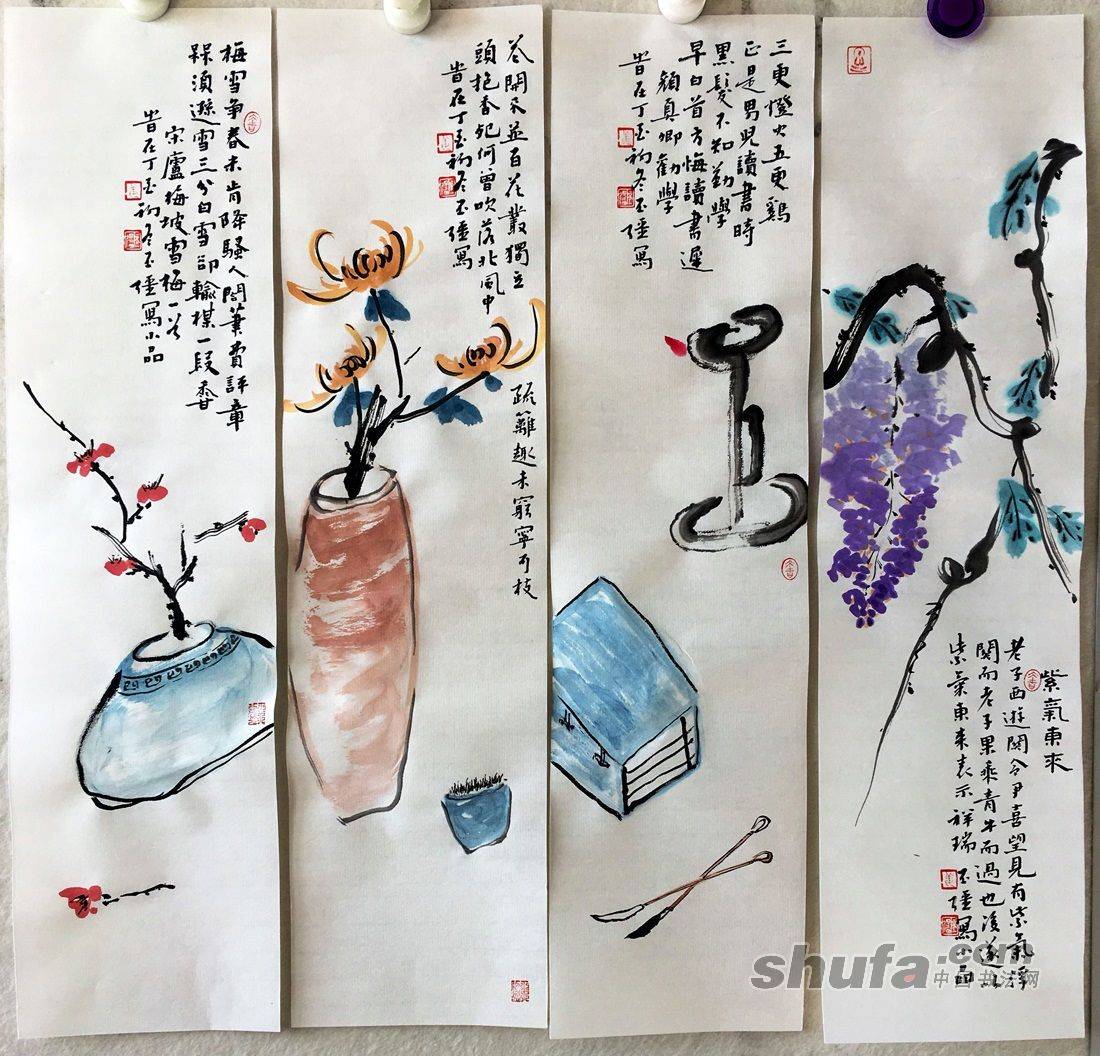 梅雪争春未肯降騷人閣筆費評章
槑須遜雪三分白雪卻輸楳一段香
宋盧梅坡雪梅一首
旹在丁酉初冬 寫小品
花開不並百花叢獨立
疏籬趣未窮寧可枝
頭抱香死何曾吹落北風中
旹在丁酉初冬 寫
三更燈火五更鷄
正是男兒讀書時
黑髮不知勤學
早白首方悔讀書遲
顔真卿勸學
旹在丁酉初冬 寫
紫氣東來
老子西遊関令尹喜望見有紫氣浮
関而老子果乘青牛而過也後遂以
紫氣東來表示祥瑞 寫小品
shufa.com
中国书法网